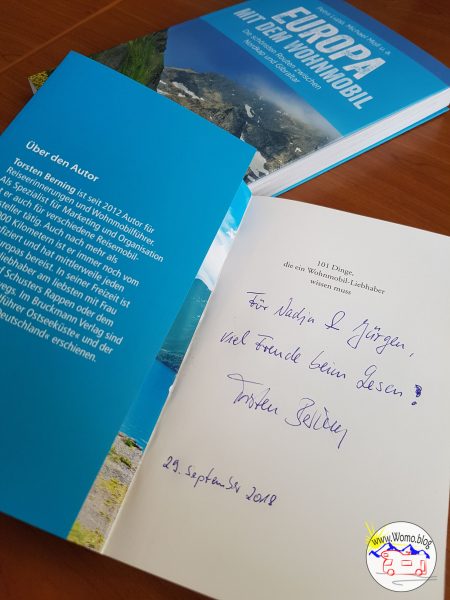 Petra Lupp, Michael Moll u. a.
EUROPA
MIT DEM WOHNMOBIL
Die schönsten Routen zwischen
Nordkap und Gibraltar
Über den Autor
Torsten Berning ist seit 2012 Autor für
Reiseerinnerungen und Wohnmobilführer.
Als Spezialist für Marketing und Organisation
er auch für verschiedene Reisemobil-
steller tätig. Auch nach mehr als
000 Kilometern ist er immer noch vom
fiziert und hat mittlerweile jeden
ropas bereist. In seiner Freizeit ist
liebhaber am liebsten mit Frau
Schusters Rappen oder dem
wegs. Im Bruckmann Verlag sind
führer Ostseeküste« und der
Deutschland« erschienen.
101 Dinge,
die ein Wohnmobil-Liebhaber
wissen muss
Für Nadja & Jürgen,
viel Freude beim Lesen!
Torsten Berning
29. September 2018
www.Womo.blog